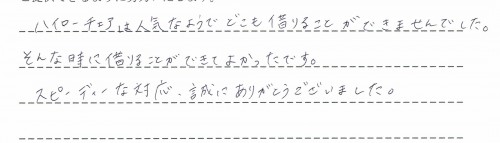 ハイローチェアは人気なようでどこも借りることができませんでした。
そんな時に借りることができてよかったです。
スピーディーな対応、誠にありがとうございました。